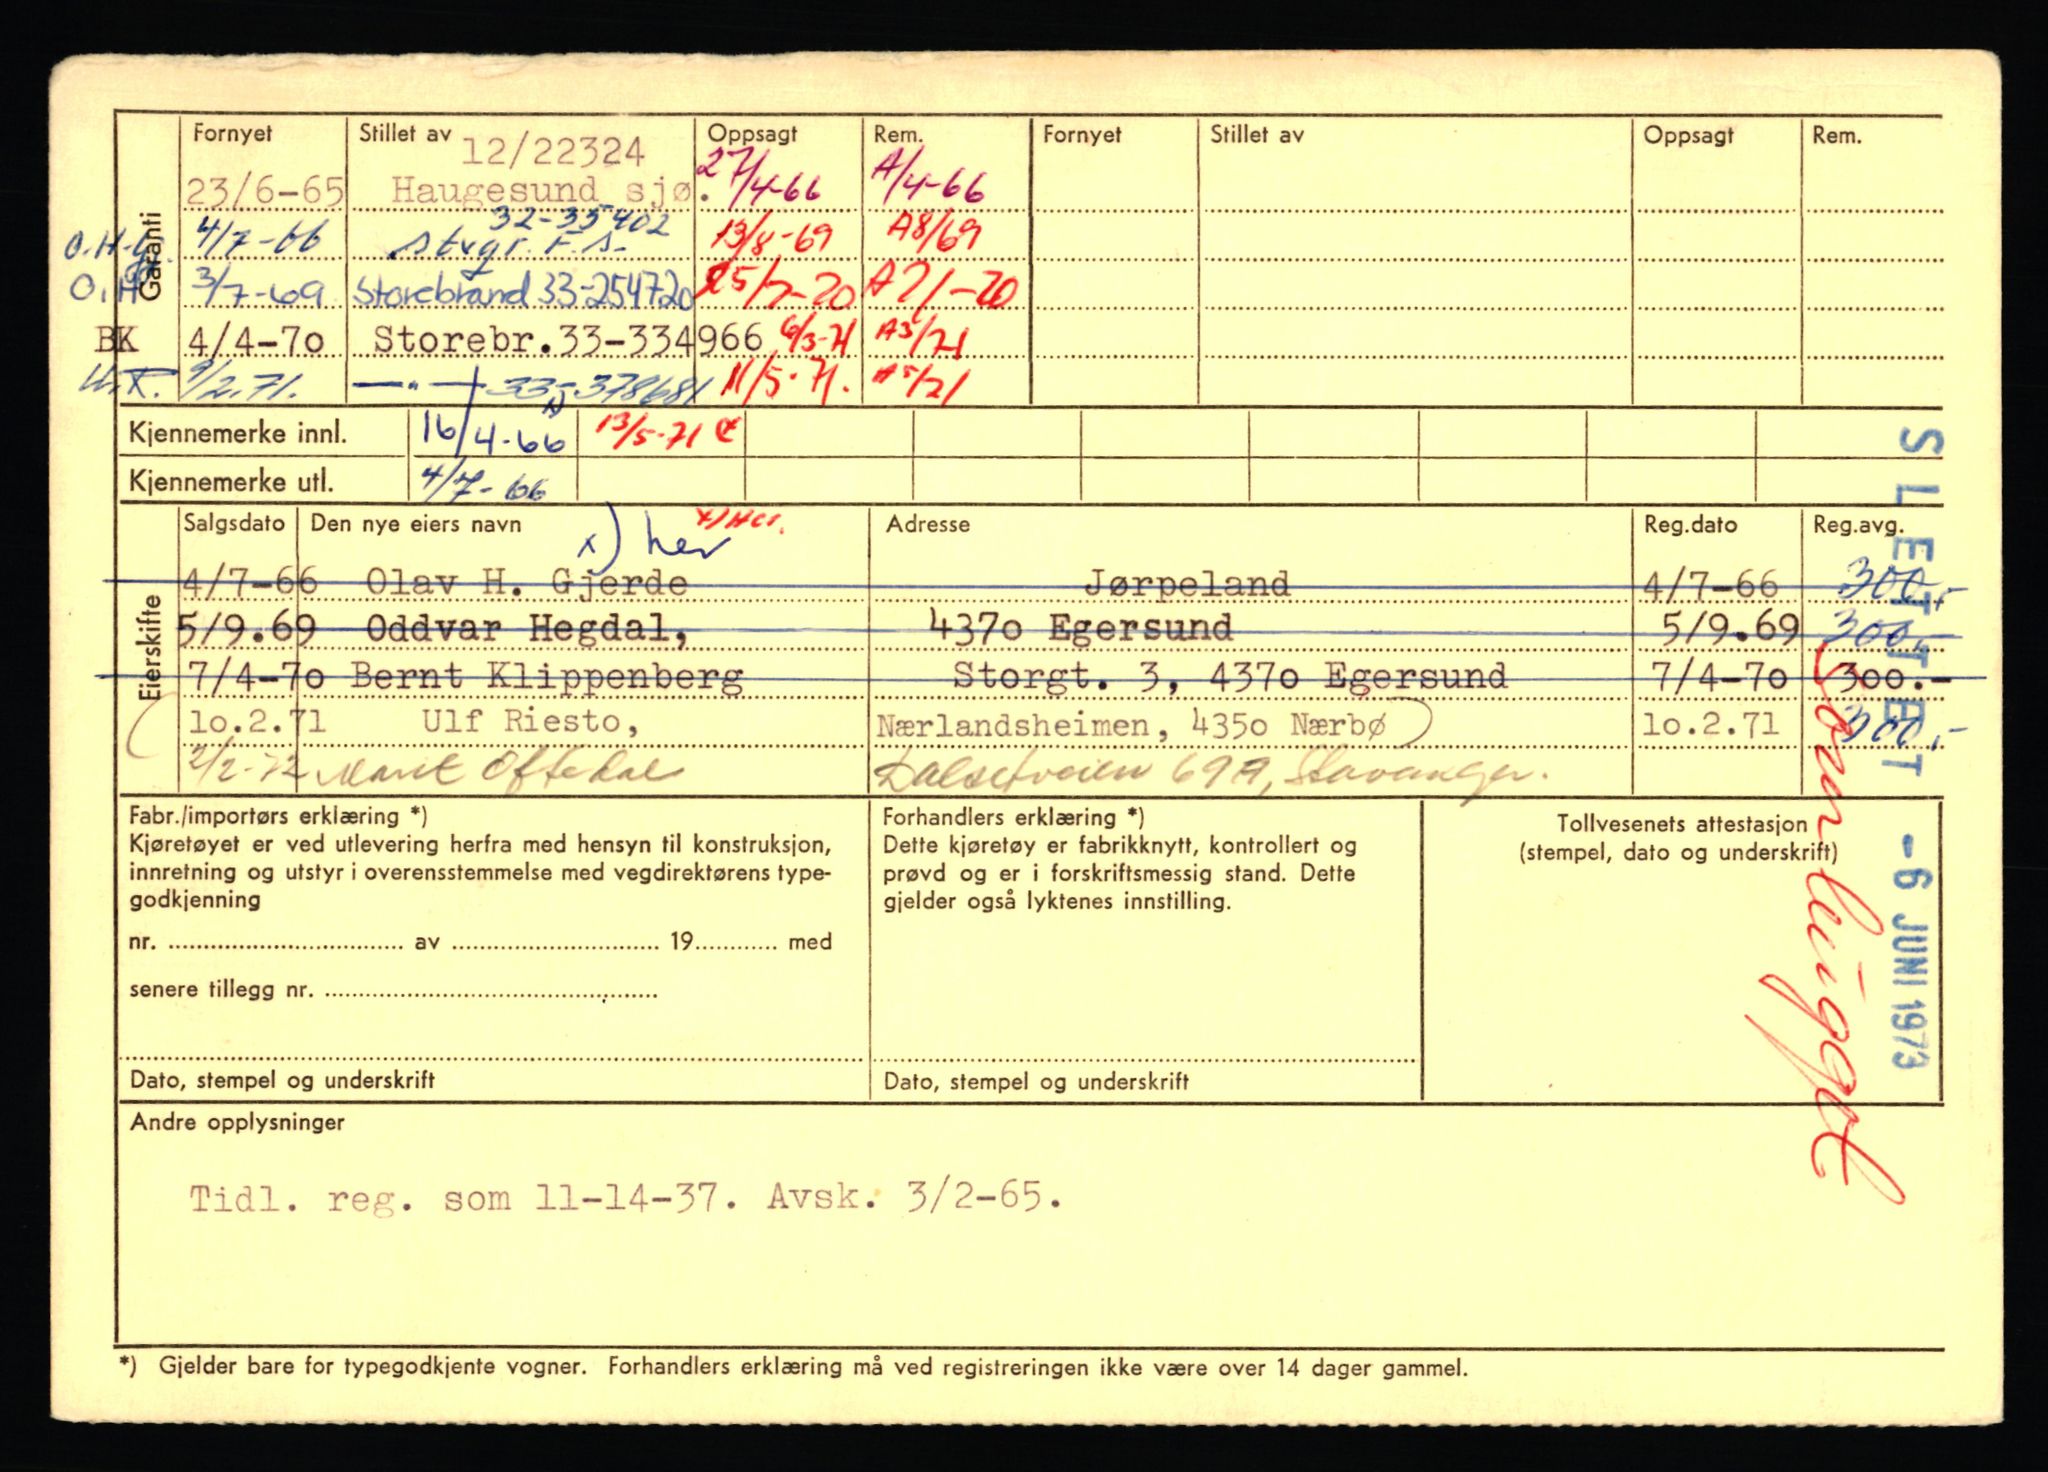 Garanti
Fornyet Stillet av Oppsagt Rem. Fornyet Stillet av Oppsagt Rem.
12/22324
23/6-65 Haugesund sjø. 27/4-66 A/4-66
32-35402
O.H.G. 4/7-66 Stvgr. F.s. 13/8-69 A8/69
O.H 3/7-69 Storebrand 33-254720 25/7-70 A7/-70
BK 4/4-70 Storebr.33-334966 6/3-71 A3/71
U.R. 9/2.71. —"— 33-378681 11/5-71. A5/71
Kjennemerke innl. 16/4-66 13/5-71
Kjennemerke utl. 4/7-66
Eierskifte
Salgsdato Den nye eiers navn x) her x) Her. Adresse Reg.dato Reg.avg.
4/7-66 Olav H. Gjerde Jørpeland 4/7-66 300,-
5/9.69 Oddvar Hegdal, 4370 Egersund 5/9.69 300,-
7/4-70 Bernt Klippenberg Storgt. 3, 4370 Egersund 7/4-70 300.-
10.2.71 Ulf Riesto, Nærlandsheimen, 4350 Nærbø 10.2.71 300,-
2/2-72 Marit Oftedal Dalsetveien 69A, Stavanger.
SLETTET
- 6 JUNI 1973
Ombygget
Fabr./importørs erklæring *)
Kjøretøyet er ved utlevering herfra med hensyn til konstruksjon,
innretning og utstyr i overensstemmelse med vegdirektørens type-
godkjenning
nr. av 19 med
senere tillegg nr.
Dato, stempel og underskrift
Forhandlers erklæring *)
Dette kjøretøy er fabrikknytt, kontrollert og
prøvd og er i forskriftsmessig stand. Dette
gjelder også lyktenes innstilling.
Dato, stempel og underskrift
Tollvesenets attestasjon
(stempel, dato og underskrift)
Andre opplysninger
Tidl. reg. som 11-14-37. Avsk. 3/2-65.
*) Gjelder bare for typegodkjente vogner. Forhandlers erklæring må ved registreringen ikke være over 14 dager gammel.